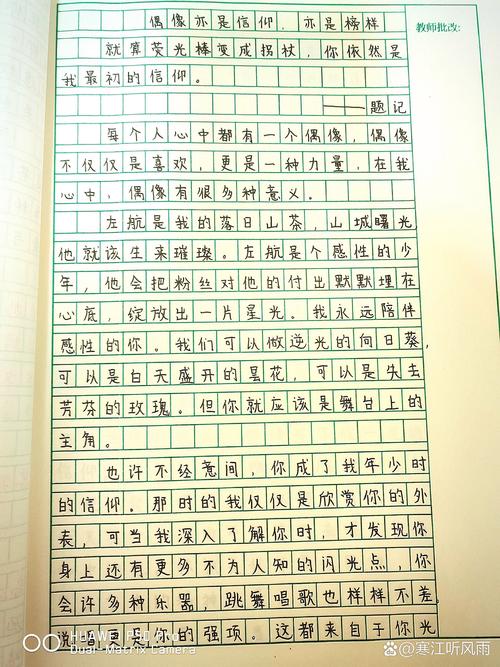 偶像亦是信仰，亦是榜样
教师批改:
就算荧光棒变成拐杖，你依然是
我最初的信仰。
——题记
每个人心中都有一个偶像，偶像
不仅仅是喜欢，更是一种力量，在我
心中，偶像有很多种意义。
左航是我的落日山茶，山城曙光
他就该生来璀璨。左航是个感性的少
年，他会把粉丝对他的付出默默埋在
心底，绽放出一片星光。我永远陪伴
感性的你。我们可以做逆光的向日葵，
可以是白天盛开的昙花，可以是失去
芳芬的玫瑰。但你就应该是舞台上的
主角。
也许不经意间，你成了我年少时
的信仰。那时的我仅仅是欣赏你的外
表，可当我深入了解你时，才发现你
身上还有更多不为人知的闪光点，你
会许多种乐器，跳舞唱歌也样样不差。
说唱更是你的强项。这都来自于你光
HUAWEI P30 Pro
Dual-Matrix Camera
寒江听风雨